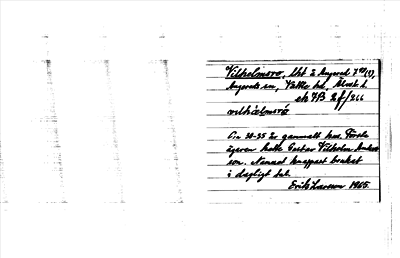 Vilhelmsro, lht å Angered 7⁴⁸(1),
Angereds sn, Vättle hd, Älvsb. l.
ek 7B 2f/266
vilhälmsró
C:a 30-35 år gammalt hus. Förste
ägaren hette Gustav Vilhelm Anders-
son. Namnet knappast brukat
i dagligt tal.
Erik Larsson 1965.